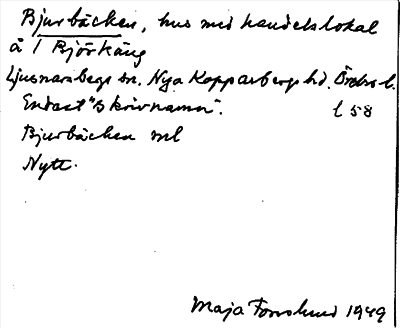 Bjurbäcken, hus med handelslokal
å 1 Björkäng
Ljusnarsbergs sn. Nya Kopparbergs hd. Örebro l.
Endast "skrivnamn". l 58
Bjurbäcken ml
Nytt.
Maja Forslund 1949